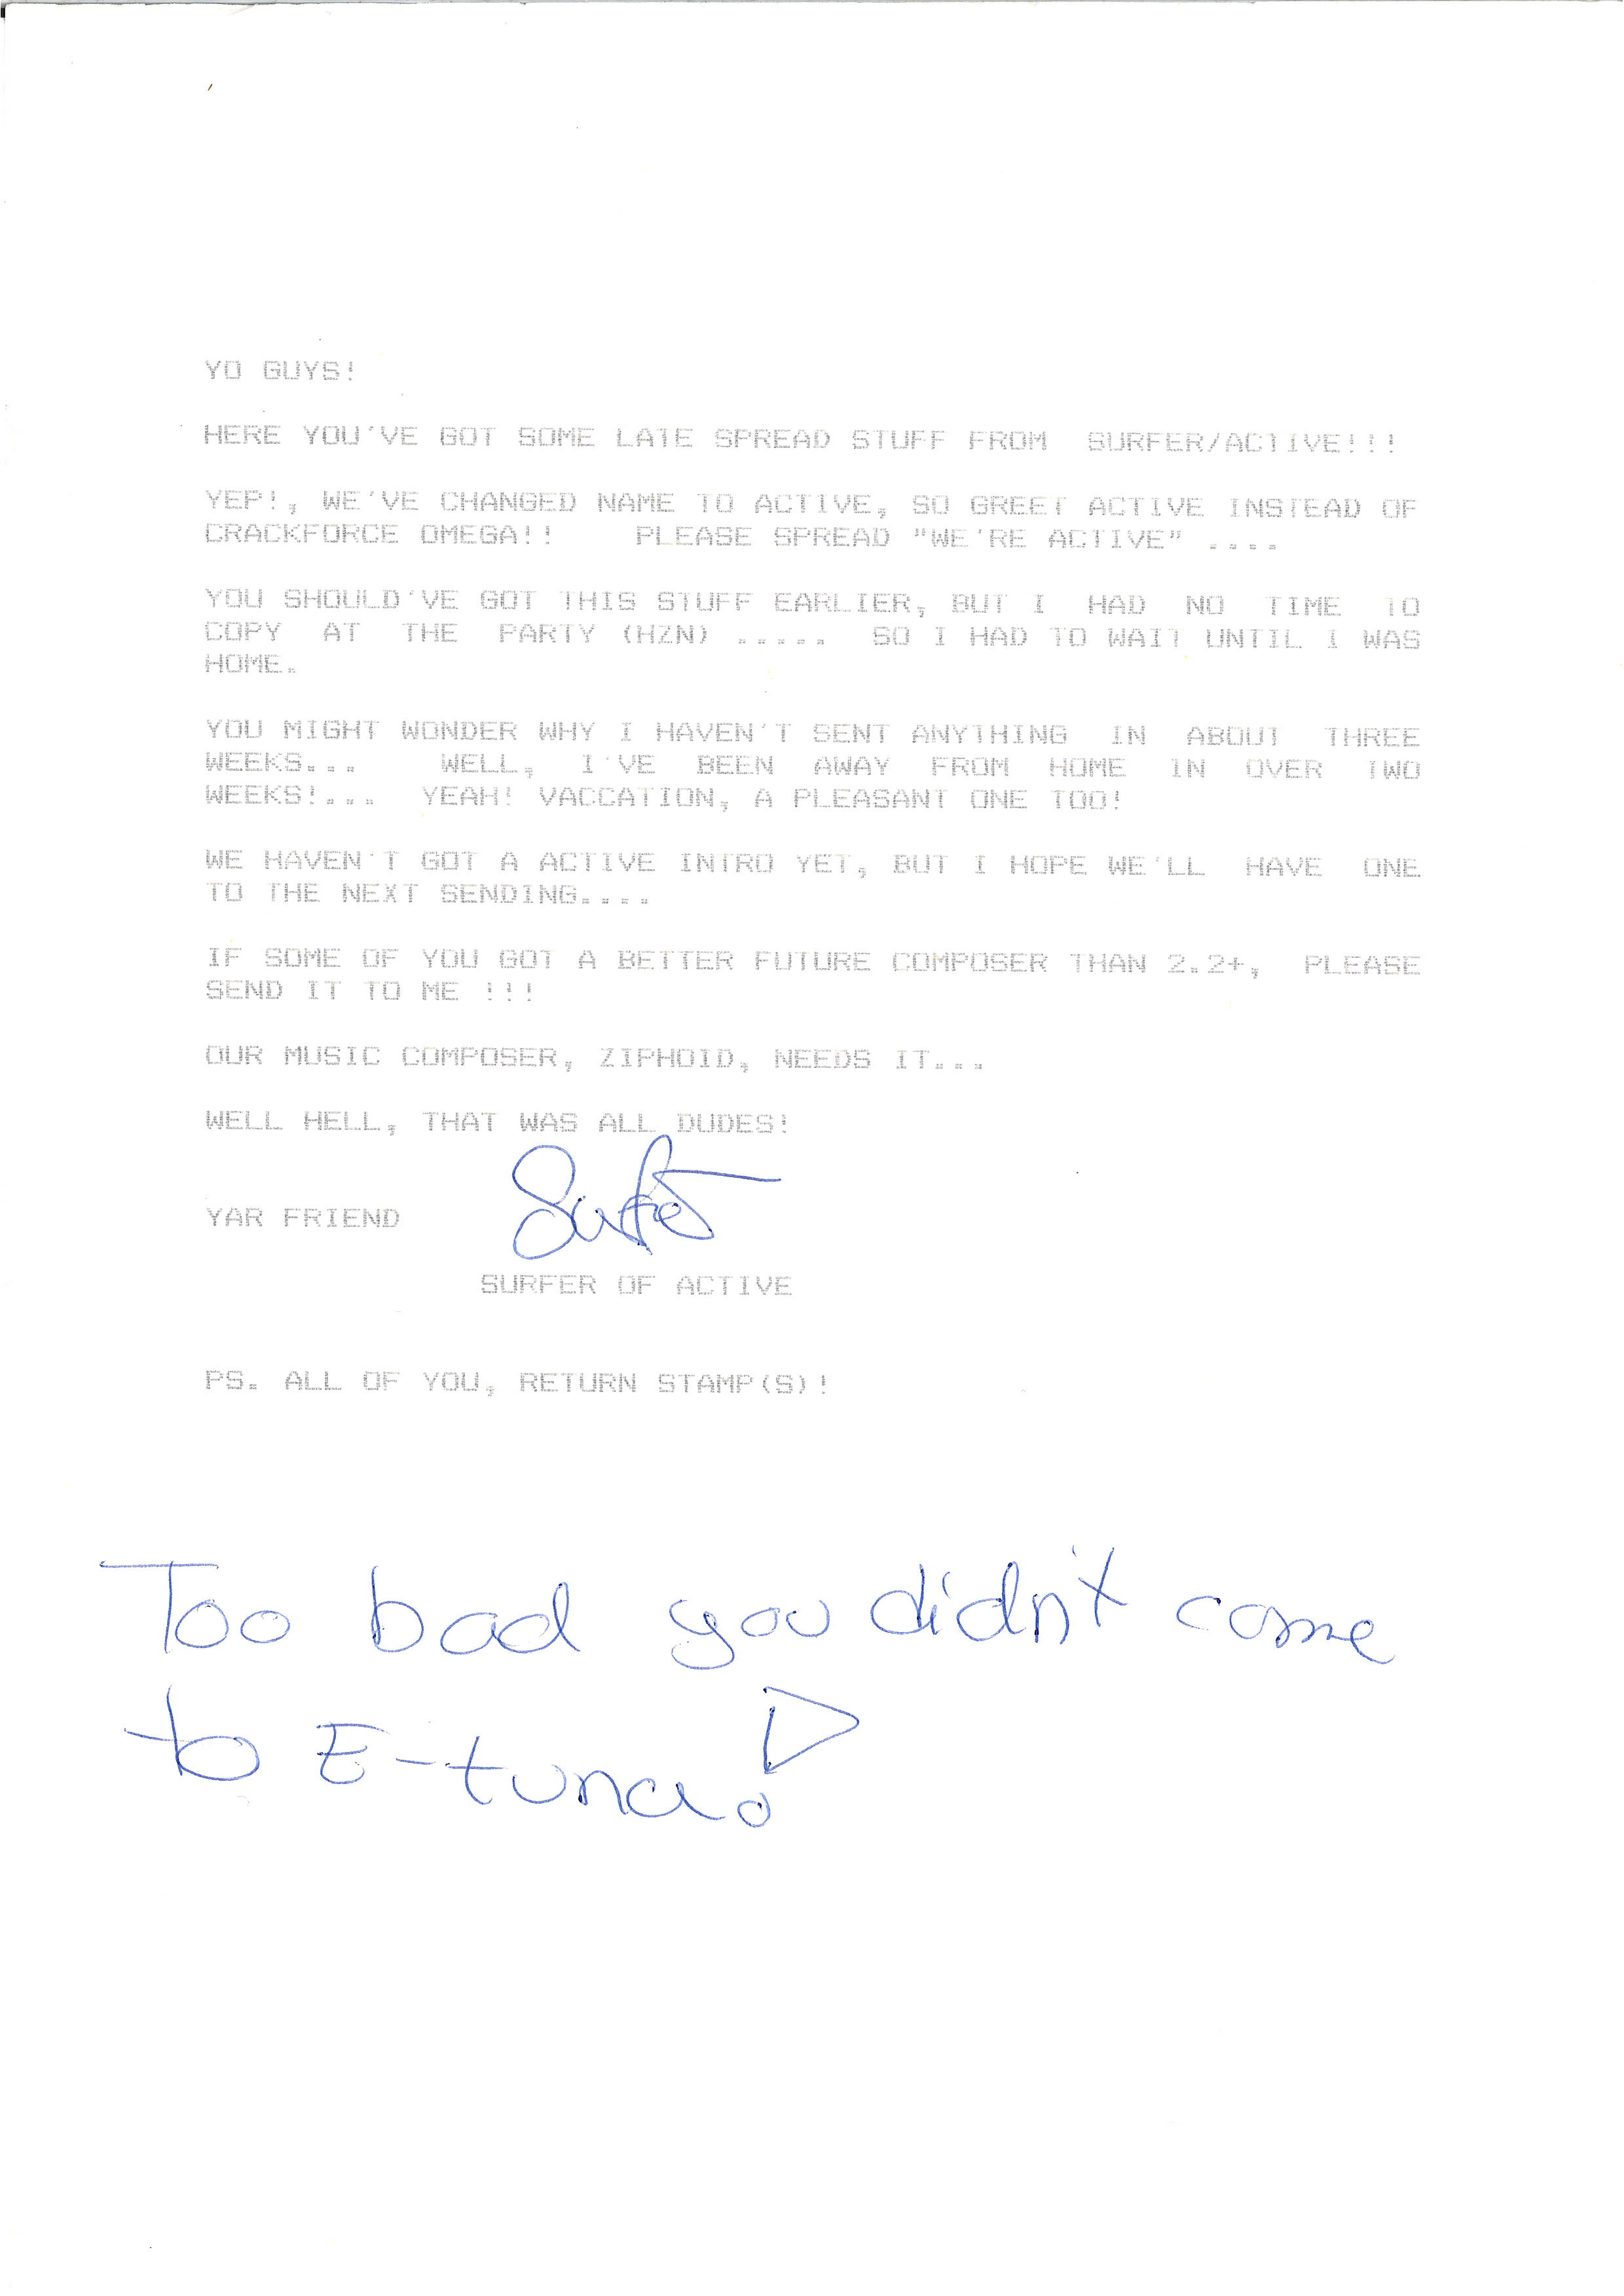 YO GUYS!
HERE YOU'VE GOT SOME LATE SPREAD STUFF FROM SURFER/ACTIVE!!!
YEP!, WE'VE CHANGED NAME TO ACTIVE, SO GREET ACTIVE INSTEAD OF
CRACKFORCE OMEGA!! PLEASE SPREAD "WE'RE ACTIVE" ....
YOU SHOULD'VE GOT THIS STUFF EARLIER, BUT I HAD NO TIME TO
COPY AT THE PARTY (HZN) ..... SO I HAD TO WAIT UNTIL I WAS
HOME.
YOU MIGHT WONDER WHY I HAVEN'T SENT ANYTHING IN ABOUT THREE
WEEKS... WELL, I'VE BEEN AWAY FROM HOME IN OVER TWO
WEEKS!... YEAH! VACCATION, A PLEASANT ONE TOO!
WE HAVEN'T GOT A ACTIVE INTRO YET, BUT I HOPE WE'LL HAVE ONE
TO THE NEXT SENDING....
IF SOME OF YOU GOT A BETTER FUTURE COMPOSER THAN 2.2+, PLEASE
SEND IT TO ME !!!
OUR MUSIC COMPOSER, ZIPHOID, NEEDS IT...
WELL HELL, THAT WAS ALL DUDES!
YAR FRIEND Surfer
SURFER OF ACTIVE
PS. ALL OF YOU, RETURN STAMP(S)!
Too bad you didn't come
to E-tuna!